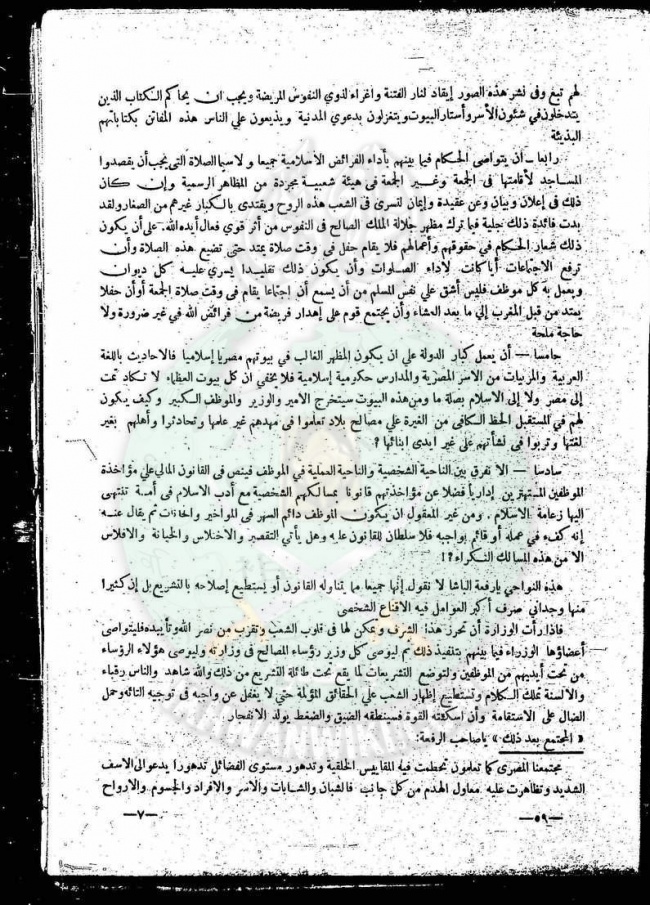 لهم تبع وفى نشر هذه الصور إيقاد لنار الفتنة واغراء لذوي النفوس المريضة ويجب ان يحاكم الكتاب الذين
يتدخلون في شئون الأسر وأستار البيوت ويتغزلون بدعوي المدنية ويذيعون علي الناس هذه المفاتن بكتاباتهم
البذيئة
رابعا — أن يتواصى الحكام فيما بينهم بأداء الفرائض الاسلامية جميعا و لاسيما الصلاة التى يجب أن يقصدوا
المساجد لأقامتها فى الجمعة وغير الجمعة فى هيئة شعبية مجردة من المظاهر الرسمية وإن كان
ذلك فى إعلان وبيان وعن عقيدة وإيمان لتسرى فى الشعب هذه الروح ويقتدى بالكبار غيرهم من الصغار ولقد
بدت فائدة ذلك جلية فيما ترك مظهر جلالة الملك الصالح فى النفوس من أثر قوي فعال أيده الله. على أن يكون
ذلك شعار الحكام في حقوقهم وأعمالهم فلا يقام حفل فى وقت صلاة يمتد حتى تضيع هذه الصلاة وأن
ترفع الاجتماعات أيا كانت لاداء الصلوات وأن يكون ذلك تقليدا يسري عليه كل ديوان
ويعمل به كل موظف فليس أشق علي نفس المسلم من أن يسمع أن اجتماعا يقام فى وقت صلاة الجمعة أو أن حفلا
يمتد من قبل المغرب إلي ما بعد العشاء وأن يجتمع قوم على إهدار فريضة من فرائض الله في غير ضرورة ولا
حاجة ملحة
خامسا — أن يعمل كبار الدولة علي ان يكون المظهر الغالب في بيوتهم مصريا إسلاميا فالاحاديث باللغة
العربية والمربيات من الاسر المصرية والمدارس حكومية إسلامية فلا يخفي ان كل بيوت العظماء لا تكاد تمت
إلى مصر ولا إلى الاسلام بصلة ما ومن هذه البيوت سيتخرج الامير والوزير والموظف الكبير وكيف يكون
لهم في المستقبل الحظ الكافى من الغيرة علي مصالح بلاد تعلموا فى مهدهم غير علمها وتحادثوا وأهلهم بغير
لغتها وتربوا فى نشأتهم على غير ايدى ابنائها ؟
سادسا — الا نفرق بين الناحية الشخصية والناحية العملية في الموظف فينص فى القانون المالي علي مؤاخذة
الموظفين المستهترين إداريا فضلا عن مؤاخذتهم قانونا بمسالكهم الشخصية مع أدب الاسلام فى أمة تنتهى
اليها زعامة الاسلام . ومن غير المعقول ان يكون الموظف دائم السهر فى المواخير والحانات ثم يقال عنه
إنه كفء في عمله أو قائم بواجبه فلا سلطان للقانون عليه وهل يأتي التقصير والاختلاس والخيانة والافلاس
الا من هذه المسالك النكراء ؟!
هذه النواحي يارفعة الباشا لا نقول إنها جميعا مما يتناوله القانون أو يستطيع إصلاحه بالتشريع بل إن كثيرا
منها وجداني صرف أكبر العوامل فيه الاقناع الشخصى
فاذا رأت الوزارة أن تحرز هذا الشرف ويمكن لها فى قلوب الشعب وتقرب من نصر الله وتأييده فليتواصى
أعضاؤها الوزراء فيما بينهم بتنفيذ ذلك ثم ليوصى كل وزير رؤساء المصالح فى وزارته وليوصى هؤلاء الرؤساء
من تحت أيديهم من الموظفين ولتوضع التشريعات لما يقع تحت طائلة التشريع من ذلك والله شاهد والناس رقباء
والالسنة تملك الكلام وتستطيع إظهار الشعب علي الحقائق المؤلمة حتي لا يغفل عن واجبه فى توجيه التائه وحمل
الضال على الاستقامة وأن اسكتته القوة فسينطقه الضيق والضغط يولد الانفجار
« المجتمع بعد ذلك » ياصاحب الرفعة :
مجتمعنا المصرى كما تعلمون تحطمت فيه المقاييس الخلقية وتدهور مستوى الفضائل تدهورا يدعو الى الاسف
الشديد وتظاهرت عليه معاول الهدم من كل جانب فالشبان والشابات والاسر والافراد والجسوم والارواح
—٥٩—
—٧—